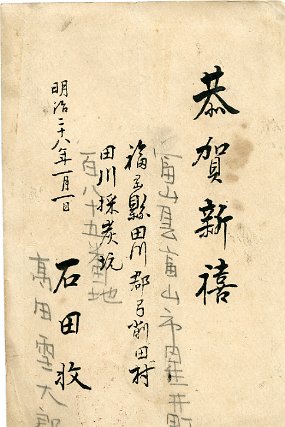 恭賀新禧
富山縣富山市星井町
福岡縣田川郡弓削田村
田川採炭坑
百八十五番地
明治二十八年一月一日
石田收
高田雪太郎